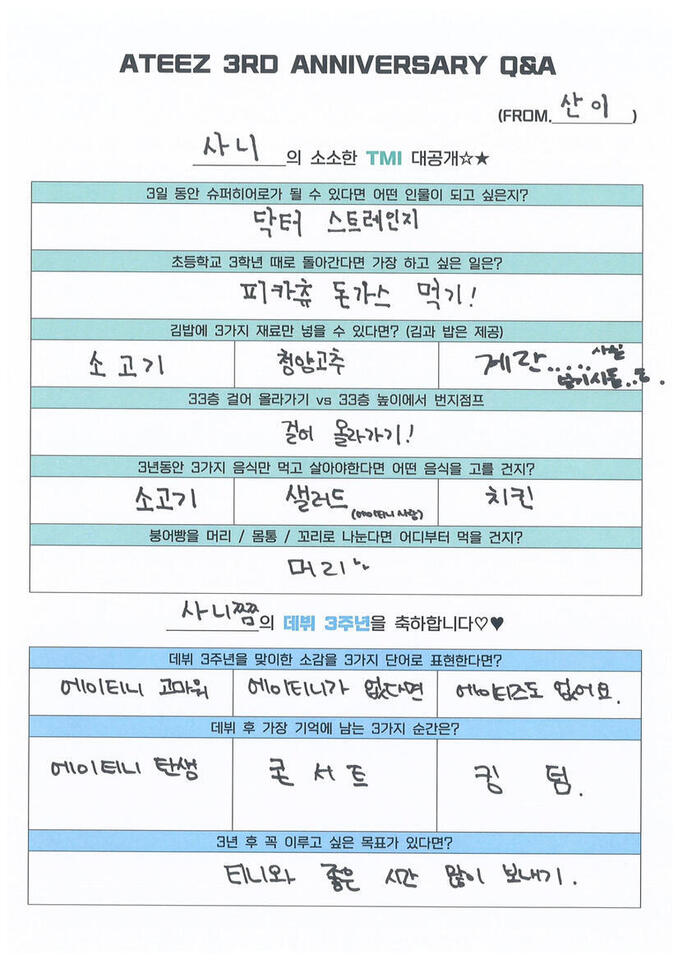 ATEEZ 3RD ANNIVERSARY Q&A
(FROM. 산이 )
사니 의 소소한 TMI 대공개☆★
3일 동안 슈퍼히어로가 될 수 있다면 어떤 인물이 되고 싶은지?
닥터 스트레인지
초등학교 3학년 때로 돌아간다면 가장 하고 싶은 일은?
피카츄 돈가스 먹기!
김밥에 3가지 재료만 넣을 수 있다면? (김과 밥은 제공)
소고기 청양고추 계란.....사실
33층 걸어 올라가기 vs 33층 높이에서 번지점프
걸어 올라가기!
3년동안 3가지 음식만 먹고 살아야한다면 어떤 음식을 고를 건지?
소고기 샐러드 (에이티니 사랑) 치킨
붕어빵을 머리 / 몸통 / 꼬리로 나눈다면 어디부터 먹을 건지?
머리
사니쨤의 데뷔 3주년을 축하합니다♡♥
데뷔 3주년을 맞이한 소감을 3가지 단어로 표현한다면?
에이티니 고마워 에이티니가 없다면 에이티즈도 없어요.
데뷔 후 가장 기억에 남는 3가지 순간은?
에이티니 탄생 콘서트 킹덤.
3년 후 꼭 이루고 싶은 목표가 있다면?
티니와 좋은 시간 많이 보내기.